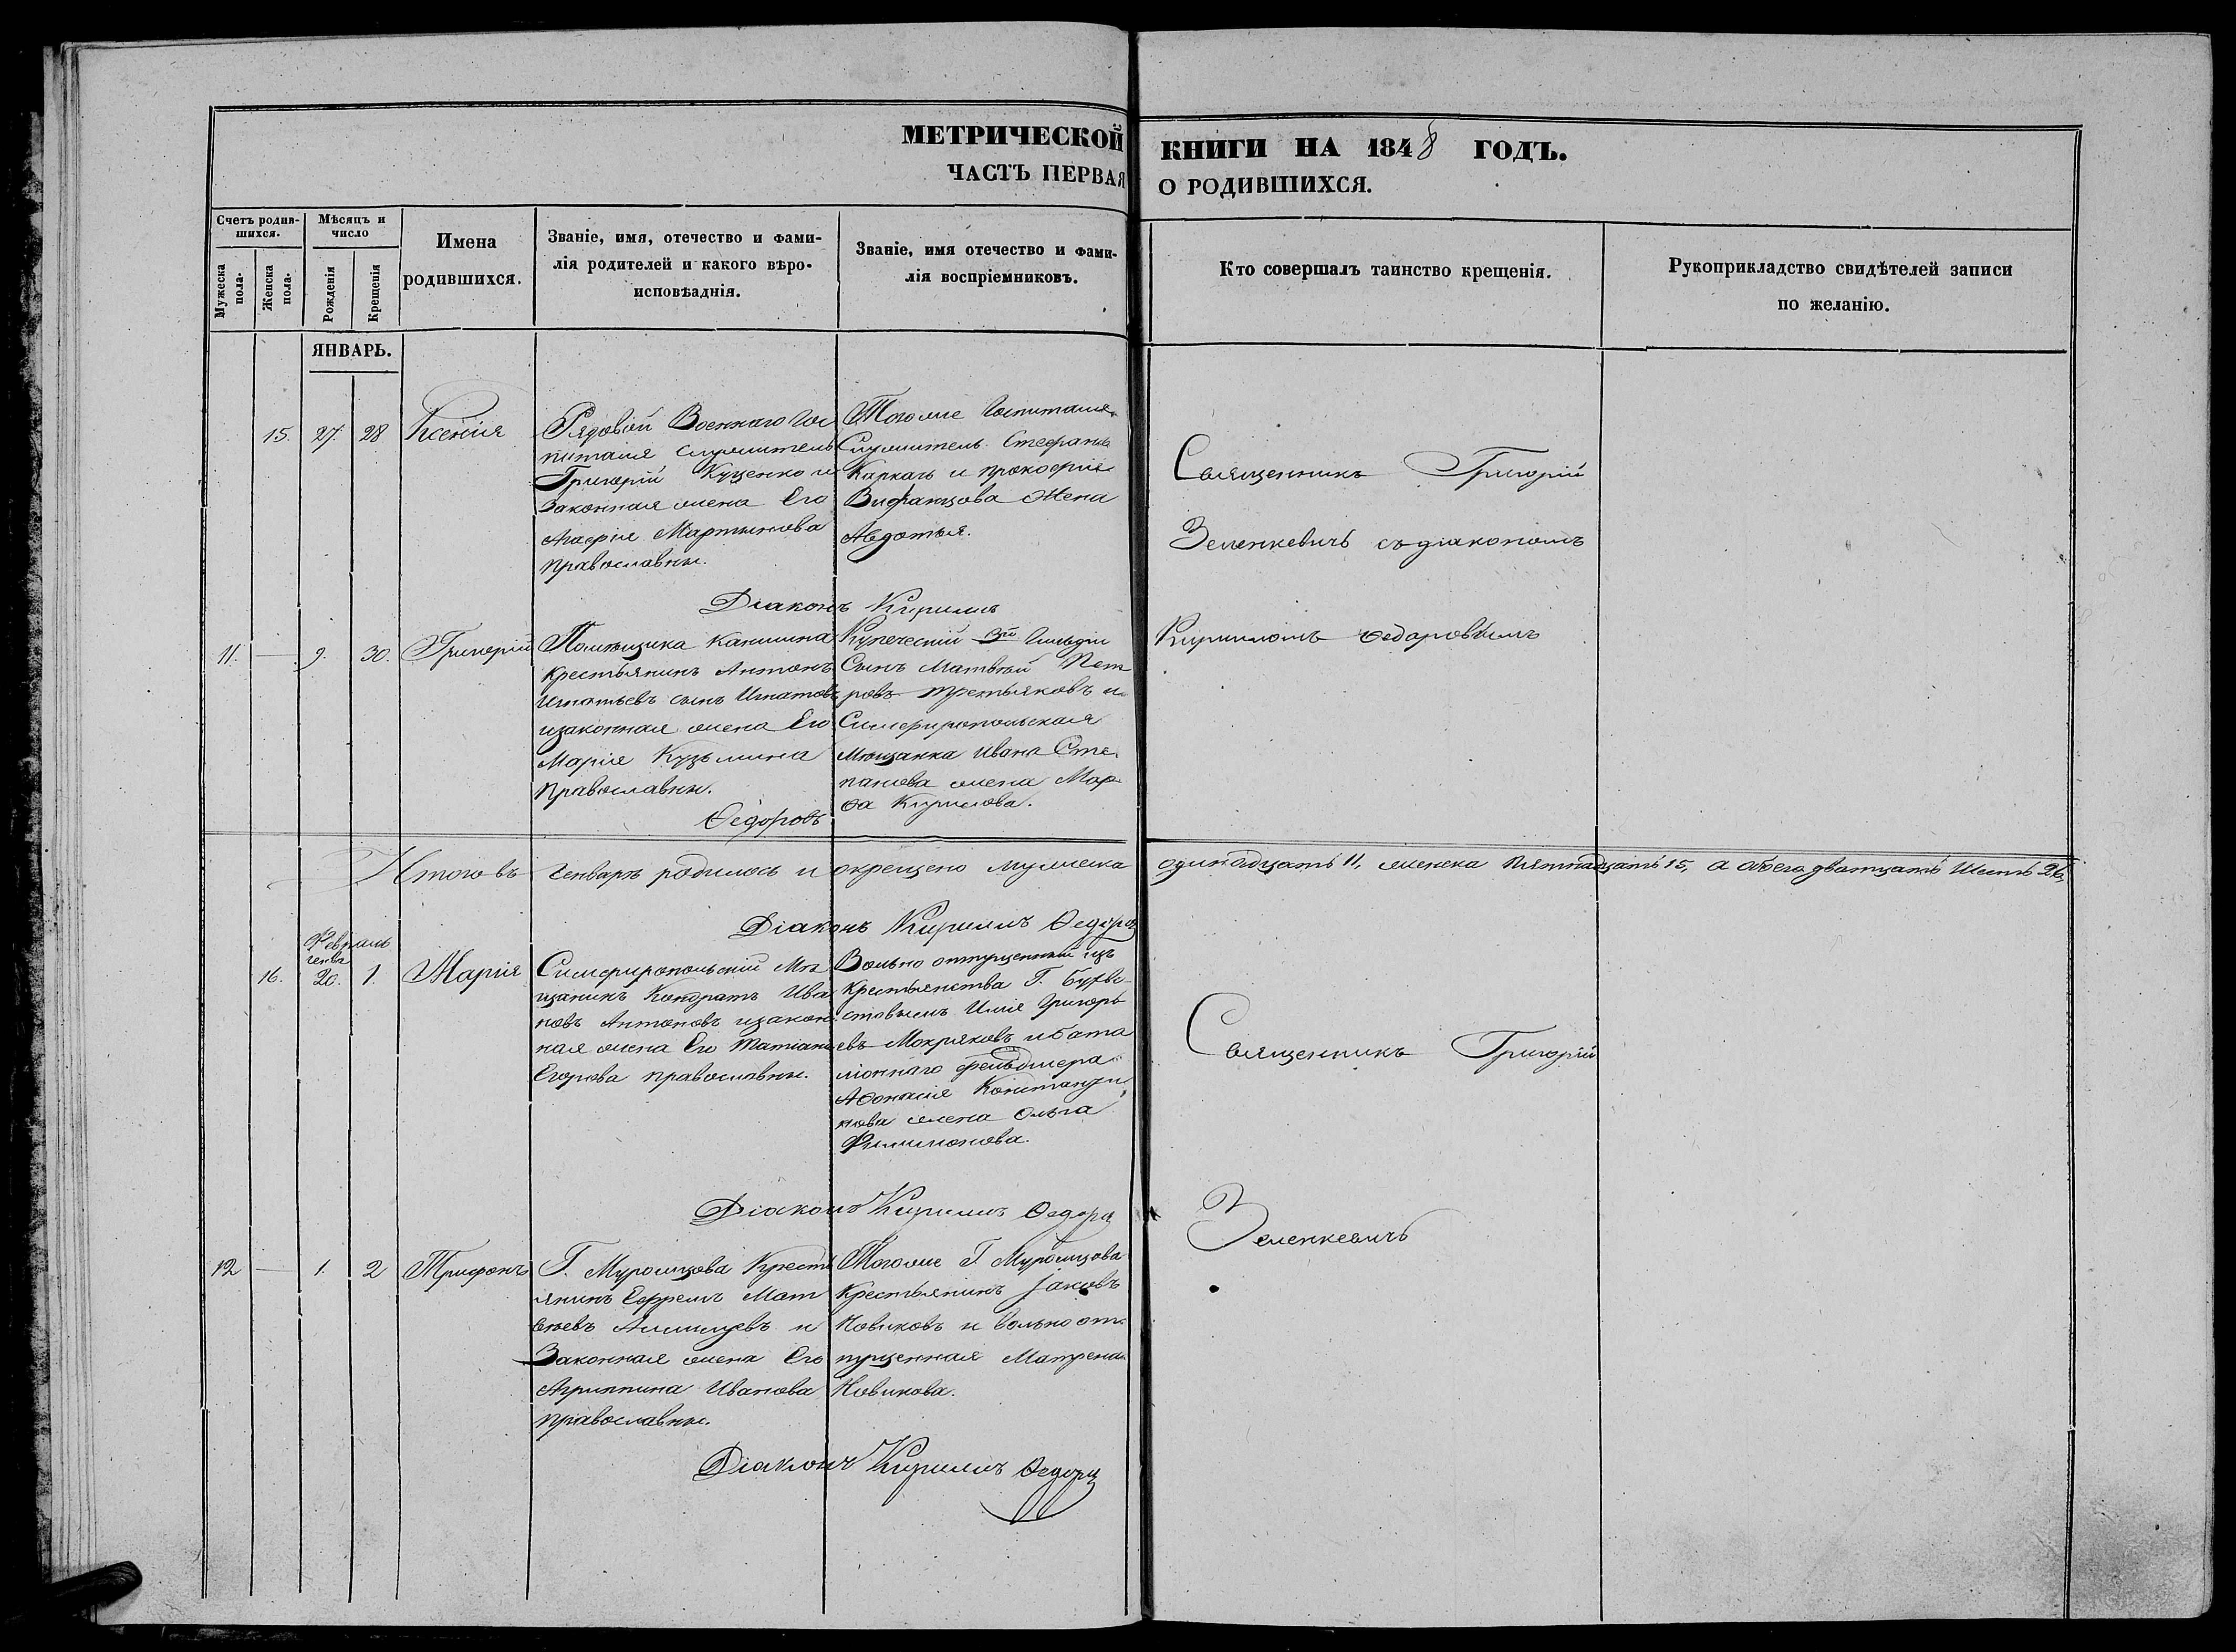 МЕТРИЧЕСКОЙ КНИГИ НА 1848 ГОДЪ.
ЧАСТЬ ПЕРВАЯ О РОДИВШИХСЯ.
Счетъ родив-
шихся.
Мужеска пола.
Женска пола.
Мѣсяцъ и
число
Рожденія
Крещенія
Имена
родившихся.
Званіе, имя, отечество и фами-
лія родителей и какого вѣро-
исповѣаднія.
Званіе, имя отечество и фами-
лія воспріемниковъ.
Кто совершалъ таинство крещенія.
Рукоприкладство свидѣтелей записи
по желанію.
ЯНВАРЬ.
15. 27. 28 Ксенія
Рядовой Военнаго Гос
питаля служитель
Григорій Куценко и
Законная жена Его
Агафія Мартынова
православны.
Тогоже Госпиталя
Служитель Стефанъ
Каркачь и Прокофія
Вифанцова Жена
Авдотья.
Діаконъ Кирилъ
Священникъ Григорій
Зеленкевичь съ діакономъ
Кириломъ Ѳедоровымъ
11. — 9. 30. Григорій
Помѣщика Кашина
крестьянинъ Антонъ
Игнатьевъ сынъ Игнатовъ
изаконная жена Его
Марія Кузьмина
православны.
Купеческій 3й Гильдіи
Сынъ Матвѣй Пет
ровъ Третьяковъ и
Симферопольская
Мѣщанка Ивана Сте
панова жена Мар
ѳа Кирилова.
Ѳедоровъ
Итого въ Генварѣ родилось и окрещено мужеска одинадцать 11, женска пятнадцать 15, а обоего дватцать шесть 26,
Діаконъ Кириллъ Ѳедоровъ
Февраль
генвр
16. 20. 1. Марія
Симферопольскій Мѣ
щанинъ Кондратъ Ива
новъ Антоновъ изакон
ная жена Его Татіана
Егорова православны.
Вольно отпущенный изъ
крестьянства Г.
Илія Григорь
евъ Мокряковъ и бата
ліоннаго фельдшера
Аѳонасія Констанди
нова жена Ольга
Филимонова.
Священникъ Григорій
Діаконъ Кириллъ Ѳедоровъ
Зеленкевичь
12 — 1. 2 Трифонъ
Г. Муромцова Кресть
янинъ Ефремъ Мат
вѣевъ и
Законная жена Его
Агриппина Иванова
православны.
Тогоже Г. Муромцова
Крестьянинъ Іаковъ
Новиковъ и вольноот
пущенная Матрена
Новикова.
Діаконъ Кириллъ Ѳедоровъ